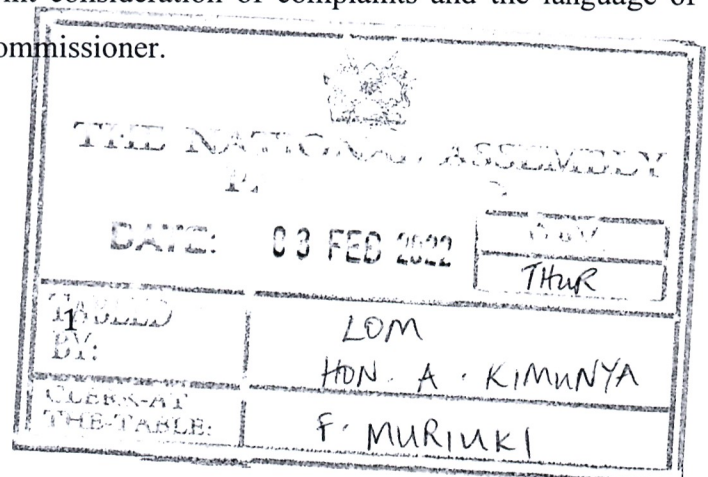 consideration of complaints and the language of
ommissioner.
THE NATIONAL ASSEMBLY
DATE: 03 FEB 2022
DAY
THUR
TABLED BY: LOM
HON. A. KIMUNYA
1
CLERK-AT THE-TABLE: F. MURIUKI